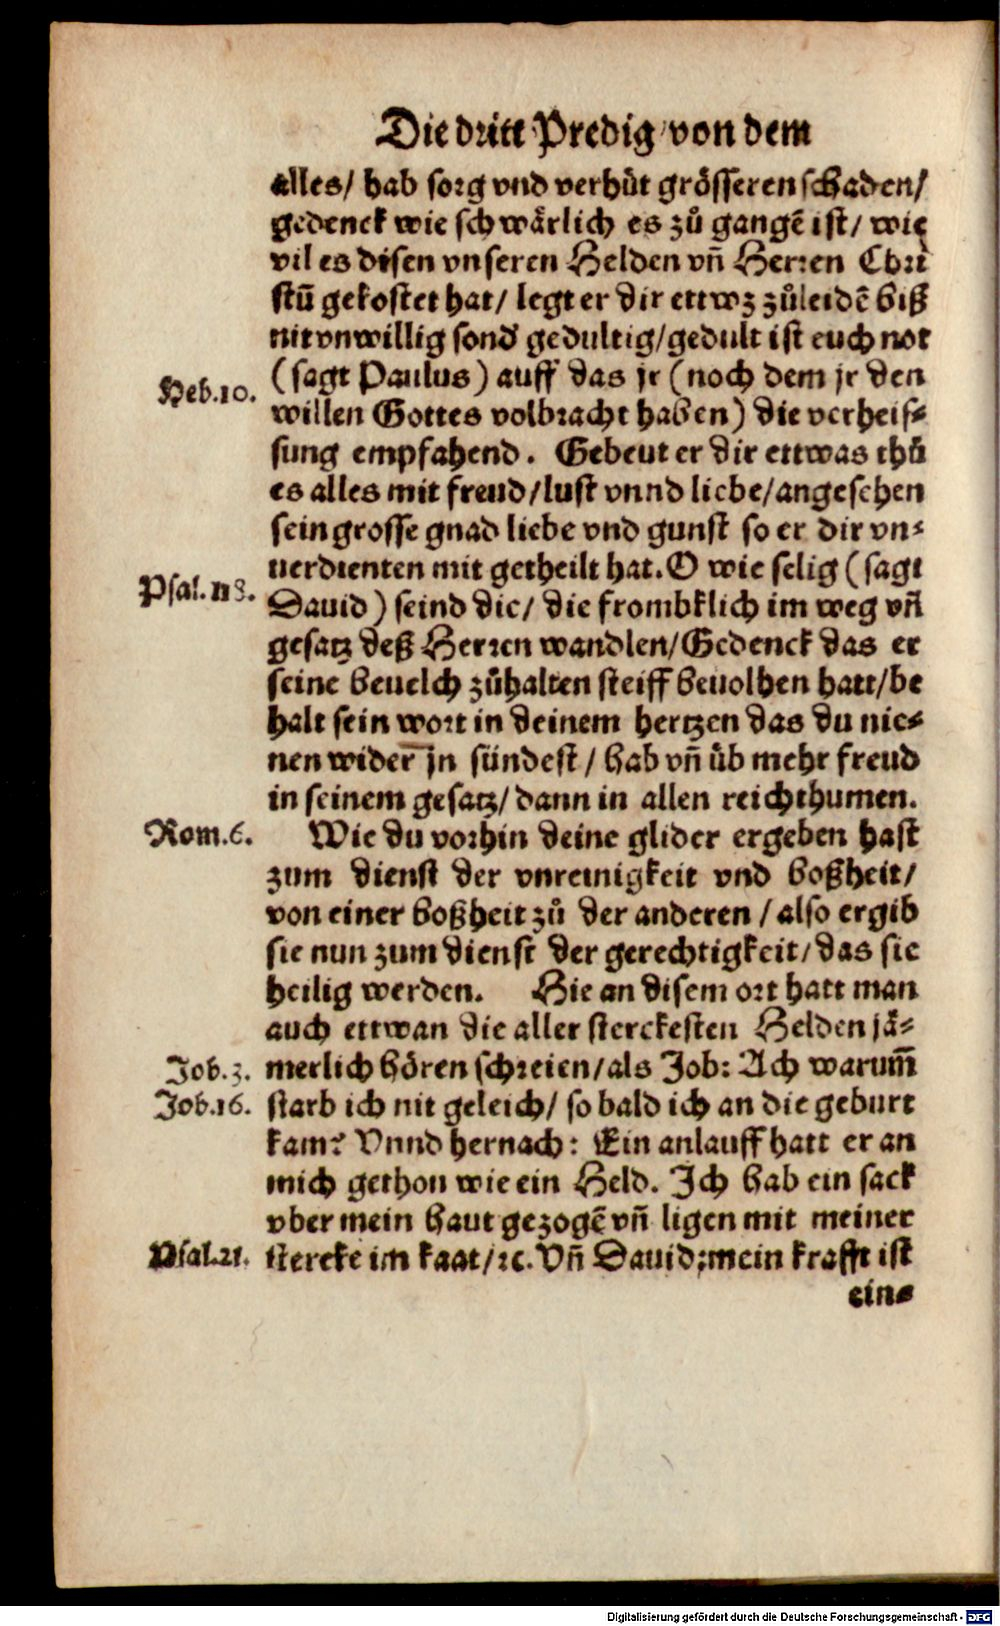 Die dritt Predig von dem
alles/ hab sorg vnd verhüt grösseren schaden/
gedenck wie schwärlich es zů gangẽ ist/ wie
vil es disen vnseren Helden vñ Herren Chri
stũ gekostet hat/ legt er dir ettwz zůleidẽ biß
nit vnwillig sond̕ gedultig/gedult ist euch not
(sagt Paulus) auff das jr (noch dem jr den
Heb.10.
willen Gottes volbracht haben) die verheis⸗
sung empfahend. Gebeut er dir ettwas thů
es alles mit freud/lust vnnd liebe/angesehen
sein grosse gnad liebe vnd gunst so er dir vn⸗
uerdienten mit getheilt hat. O wie selig (sagt
Psal.118.
Dauid) seind die/ die frombklich im weg vñ
gesatz deß Herren wandlen/Gedenck das er
seine beuelch zůhalten steiff beuolhen hatt/be
halt sein wort in deinem hertzen das du nie⸗
nen wider jn sündest/ hab vñ üb mehr freud
in seinem gesatz/ dann in allen reichthumen.
Rom.6.
Wie du vorhin deine glider ergeben hast
zum dienst der vnreinigkeit vnd boßheit/
von einer boßheit zů der anderen/also ergib
sie nun zum dienst der gerechtigkeit/das sie
heilig werden. Hie an disem ort hatt man
auch ettwan die aller sterckesten Helden jä⸗
Job.3.
merlich hören schreien/als Job: Ach warum̃
Job.16.
starb ich nit geleich/ so bald ich an die geburt
kam? Vnnd hernach: Ein anlauff hatt er an
mich gethon wie ein Held. Ich hab ein sack
vber mein haut gezogẽ vñ ligen mit meiner
Psal.21.
stercke im kaat/ꝛc. Vñ Dauid: mein krafft ist
ein⸗
Digitalisierung gefördert durch die Deutsche Forschungsgemeinschaft - DFG